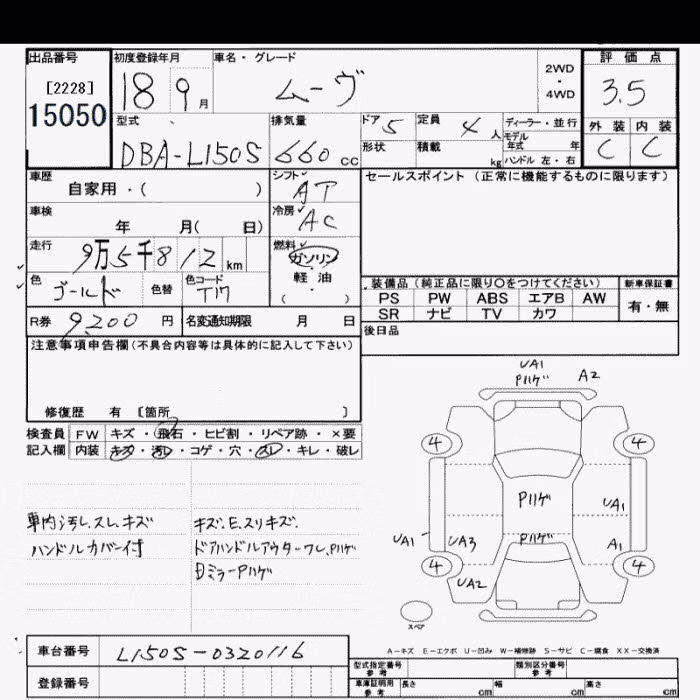 出品番号 初度登録年月 車名・グレード 2WD・4WD 評価点
[2228] 15050 18 9月 ムーヴ 3.5
型式 排気量 ドア 5 定員 4人 ディーラー・並行 外装 内装
DBA-L150S 660cc 形状 積載 kg モデル年式 年 ハンドル 左・右 C C
車歴 シフト セールスポイント (正常に機能するものに限ります)
自家用・( ) AT
車検 冷房
年 月( 日) AC
走行 9万5千812km 燃料 ガソリン
色 色替 色コード 軽油 装備品 (純正品に限り○をつけてください) 新車保証書
ゴールド T17 ・( ) PS PW ABS エアB AW 有・無
SR ナビ TV カワ
R券 9,200円 名変通知期限 月 日 後日品
注意事項申告欄 (不具合内容等は具体的に記入して下さい)
修復歴 有 [箇所 ]
検査員 FW キズ・飛石・ヒビ割・リペア跡・×要
記入欄 内装 キズ・汚レ・コゲ・穴・スレ・キレ・破レ
UA1
Pハゲ A2
4 4
Pハゲ
UA1
UA1 UA3 Pハゲ A1
4 4
UA2
スペア
車内汚レ、スレ、キズ キズ、E、スリキズ、
ハンドルカバー付 ドアハンドルアウターワレ、Pハゲ
ミラーPハゲ
A－キズ E－エクボ U－凹み W－補修跡 S－サビ C－腐食 XX－交換済
車台番号 L150S-0320116
型式指定番号 参考 類別区分番号 参考
登録番号 車庫証明用 参考 長さ cm 幅 cm 高さ cm